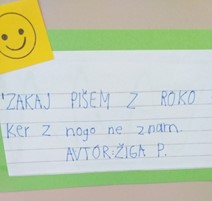 ZAKAJ PIŠEM Z ROKO
Ker z nogo ne znam.
AVTOR: ŽIGA P.